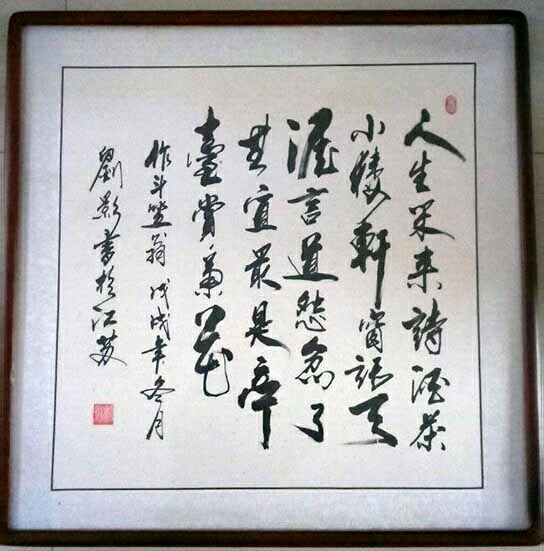 人生采来詩酒茶
小楼軒窗話天
涯言道愁怎了
其宜最是亭
臺賞菊花
作斗室翁戊戌年冬月
劉影書於江蘇